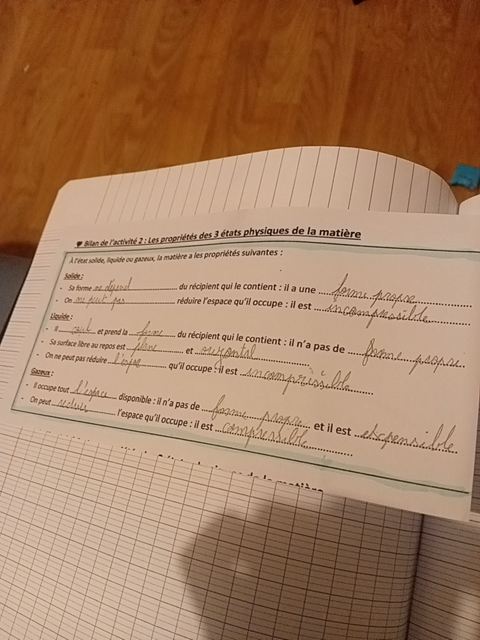 ♥ Bilan de l'activité 2 : Les propriétés des 3 états physiques de la matière
À l'état solide, liquide ou gazeux, la matière a les propriétés suivantes :
Solide :
- Sa forme ne dépend ............ du récipient qui le contient : il a une ...forme propre............
- On ne peut pas ............ réduire l'espace qu'il occupe : il est ...incompressible............
Liquide :
- Il coule et prend la forme du récipient qui le contient : il n'a pas de forme propre..
- Sa surface libre au repos est plane et orizontal
- On ne peut pas réduire l'espace qu'il occupe : il est incompressible
Gazeux :
- Il occupe tout l'espace disponible : il n'a pas de forme propre et il est expensible
- On peut réduire l'espace qu'il occupe : il est compressible